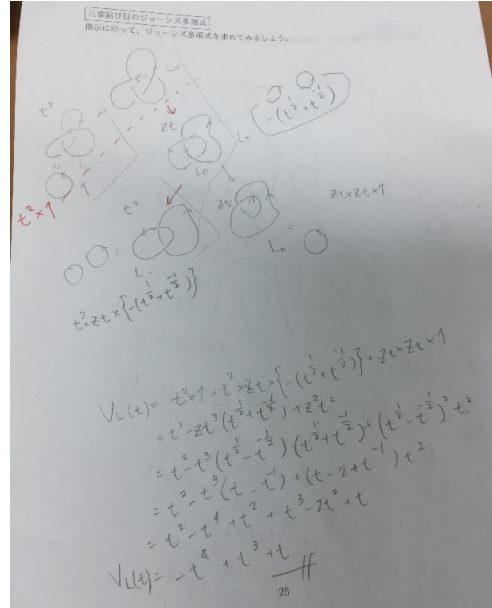 三葉結び目のジョーンズ多項式
指示に沿って、ジョーンズ多項式を求めてみましょう。
t²
zt
L₀
-(t^{1/2}+t^{-1/2})
t²×1
t²
zt
zt×zt×1
L₋
L₀
=
t²×zt×{-(t^{1/2}+t^{-1/2})}
V_L(t)= t²×1+t²×zt×{-(t^{1/2}+t^{-1/2})}+zt×zt×1
=t²-zt³(t^{1/2}+t^{-1/2})+z²t²
=t²-t³(t^{1/2}-t^{-1/2})(t^{1/2}+t^{-1/2})+(t^{1/2}-t^{-1/2})²t²
=t²-t³(t-t^{-1})+(t-2+t^{-1})t²
=t²-t⁴+t²+t³-2t²+t
V_L(t)= -t⁴+t³+t
25